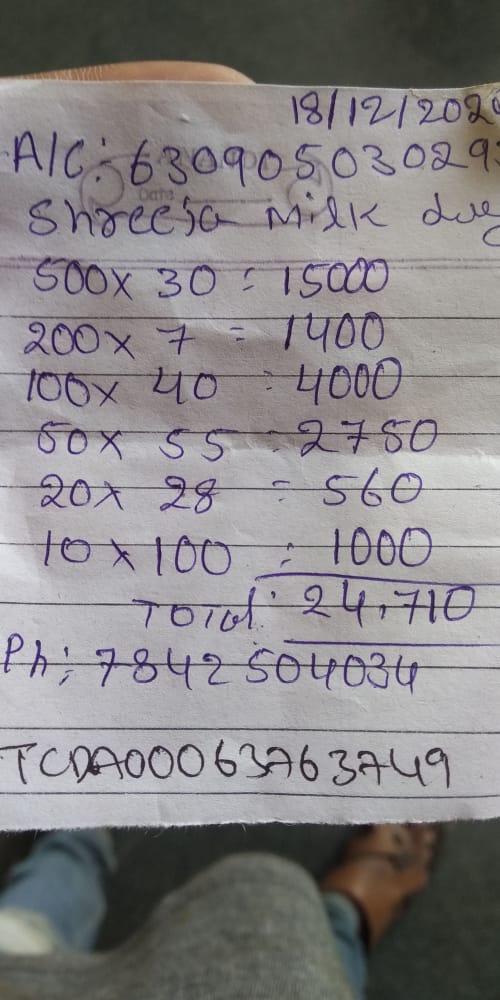 18/12/202
A/C: 6309050302293
Shreeja Milk
500x 30 = 15000
200x 7 = 1400
100x 40 = 4000
50x 55 = 2750
20x 28 = 560
10 x 100 = 1000
TOTal: 24,710
Ph: 7842504034
TCDA000637637 49